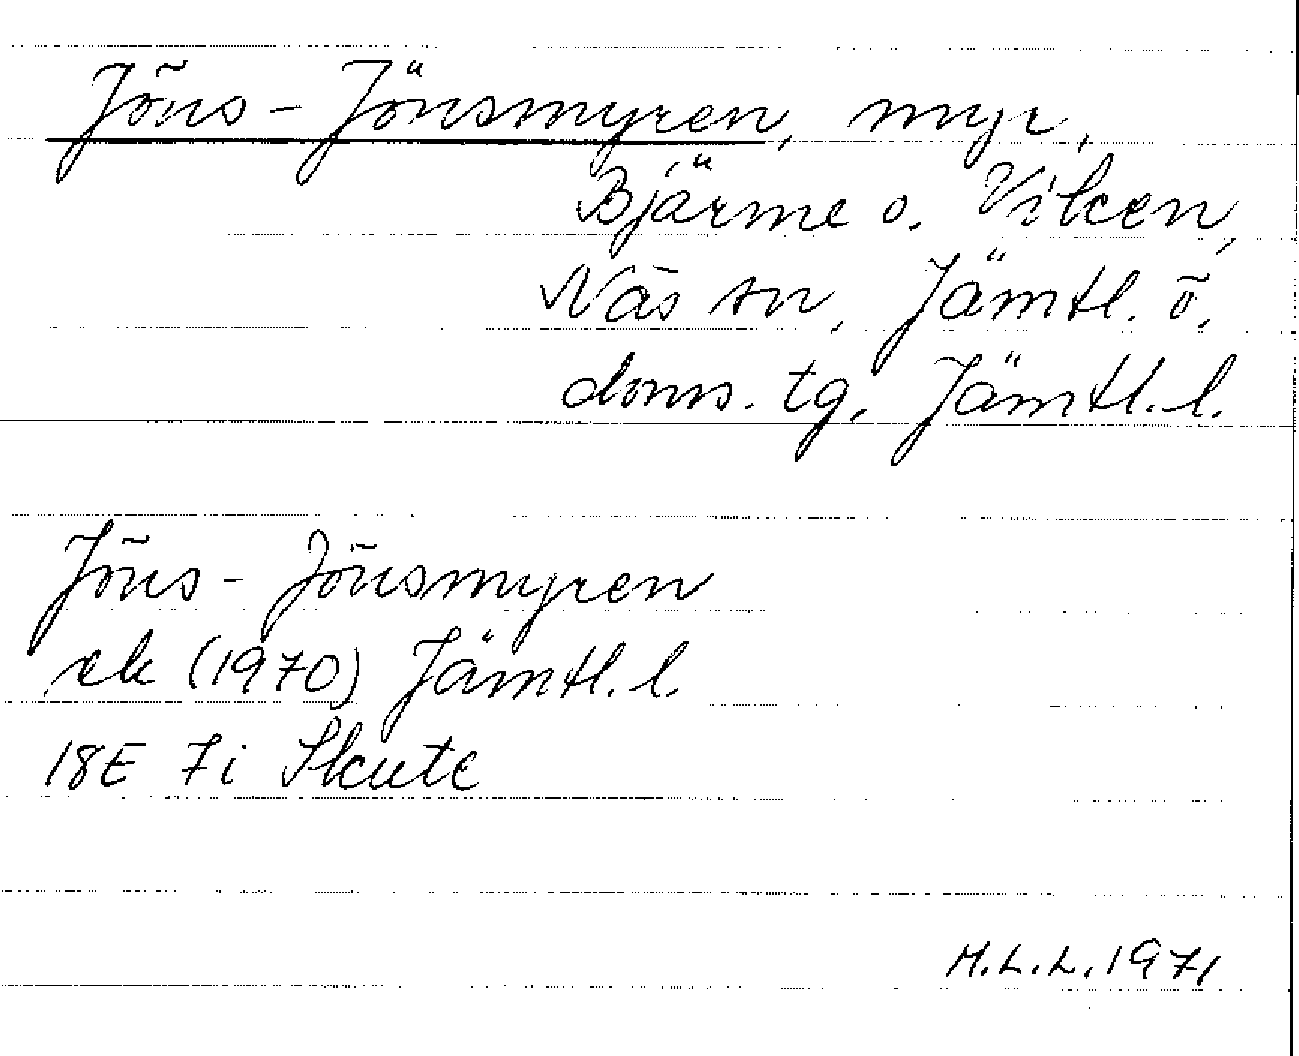 Jöns-Jönsmyren, myr,
Bjärme o. Viken,
Näs sn, Jämtl. ö.
doms. tg, Jämtl. l.
Jöns-Jönsmyren
ek (1970) Jämtl. l.
18E 7i Skute
M.L.L. 1971